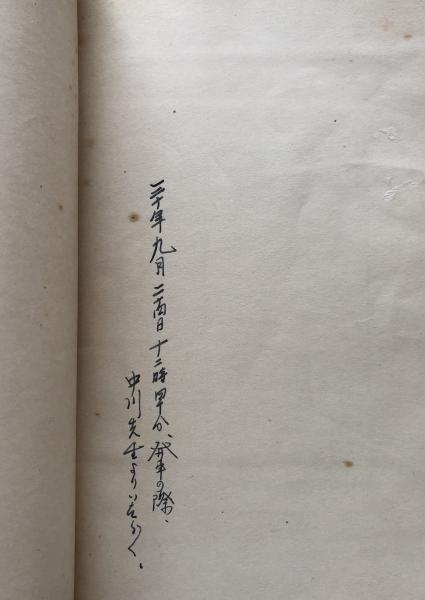 三十年九月二十四日十二時四十分、発車の際、
中川先生よりいたゞく。